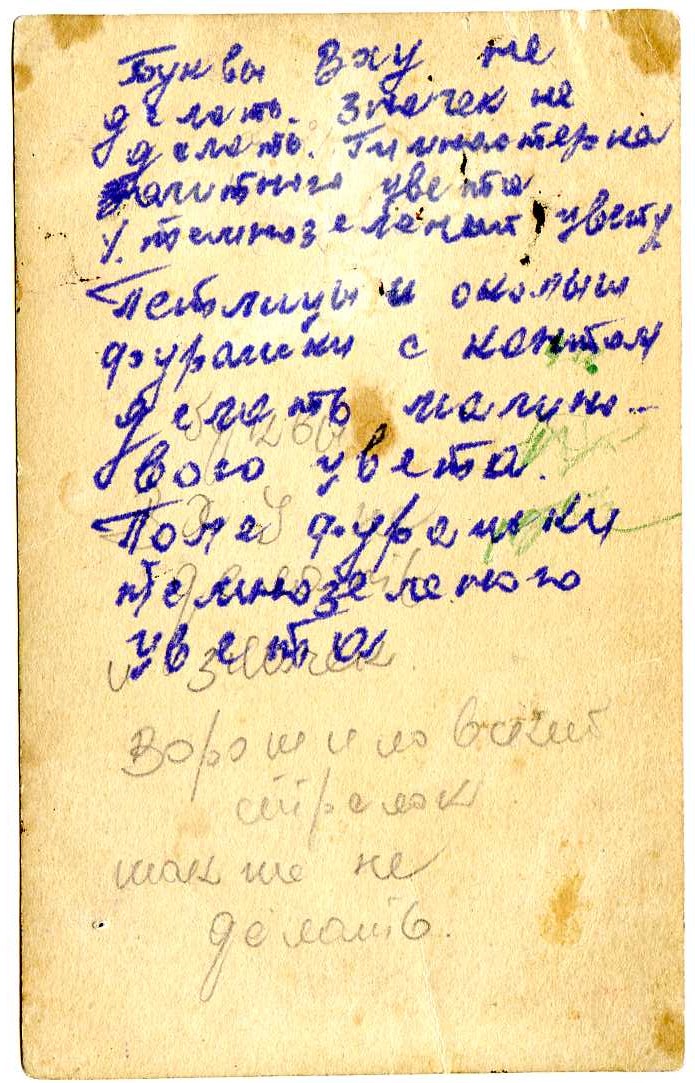 Буквы ВХУ не
делать. Значек не
делать. Гимнастерка
защитного цвета
темнозеленый цвету
Петлицы и околыш
фуражки с кантом
делать малино-
вого цвета.
Поле фуражки
темнозеленого
цвета
и значек
Ворошиловский
стрелок
также не
делать.